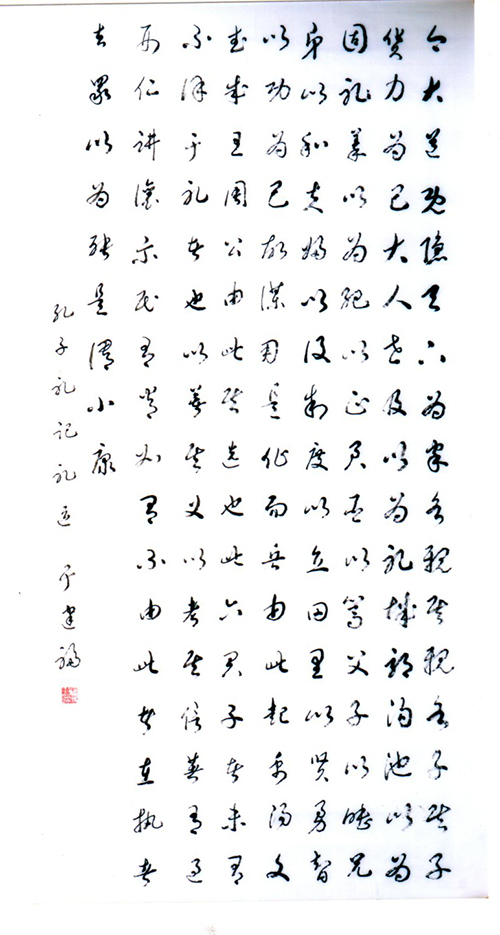 今大道既隐天下为家各親其親各子其子
货力为己大人世及以为礼城郭沟池以为
固礼義以为纪以正君臣以笃父子以睦兄
弟以和夫婦以设制度以立田里以贤勇智
以功为己故谋用是作而兵由此起禹汤文
武成王周公由此其选也此六君子者未有
不谨于礼者也以著其义以考其信著有过
刑仁讲讓示民有常如有不由此者在执者
去眾以为殃是谓小康
孔子礼记礼运 于建福